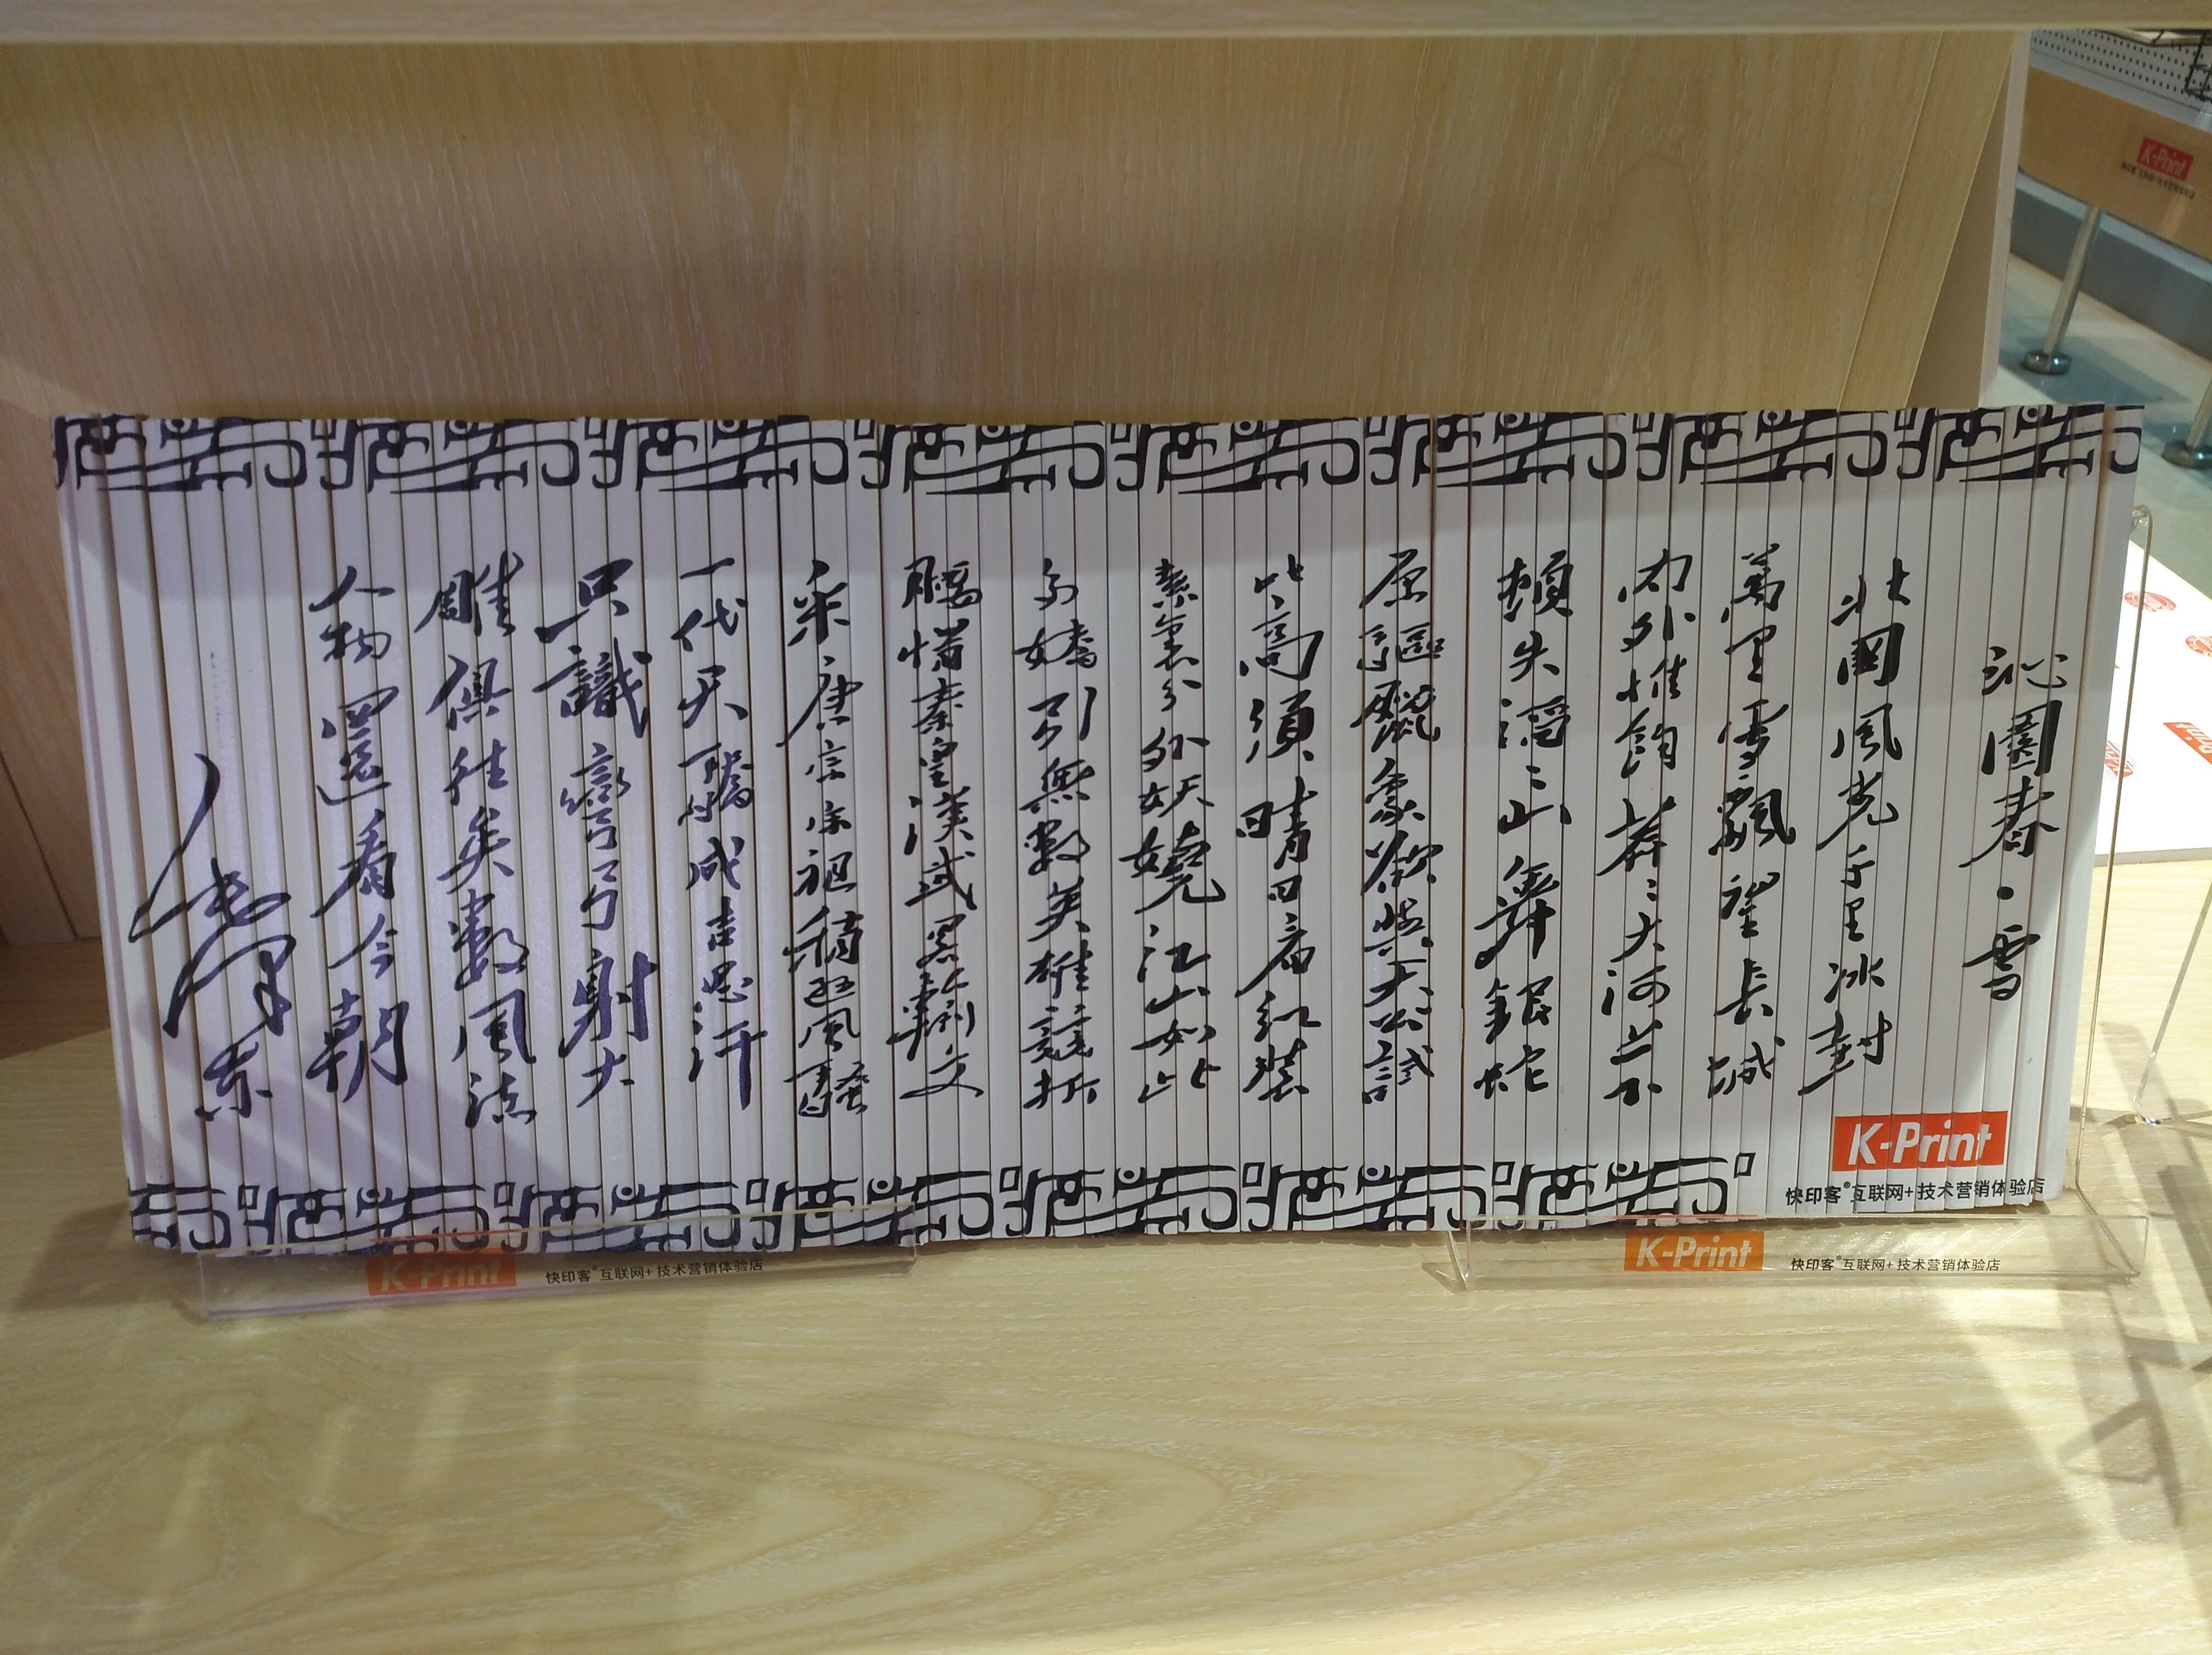 沁園春·雪
北國風光千里冰封
萬里雪飄望長城
內外惟餘莽〻大河上下
頓失滔〻山舞銀蛇
原馳臘象欲與天公試
比高須晴日看紅裝
素裹分外妖嬈江山如此
多嬌引無數英雄競折
腰惜秦皇漢武略輸文
采唐宗宋祖稍遜風騷
一代天驕成吉思汗
只識彎弓射大
雕俱往矣數風流
人物還看今朝
毛澤東
K-Print
快印客®互联网+技术营销体验店
K-Print
快印客®互联网+技术营销体验店
K-Print
快印客®互联网+技术营销体验店
K-Print